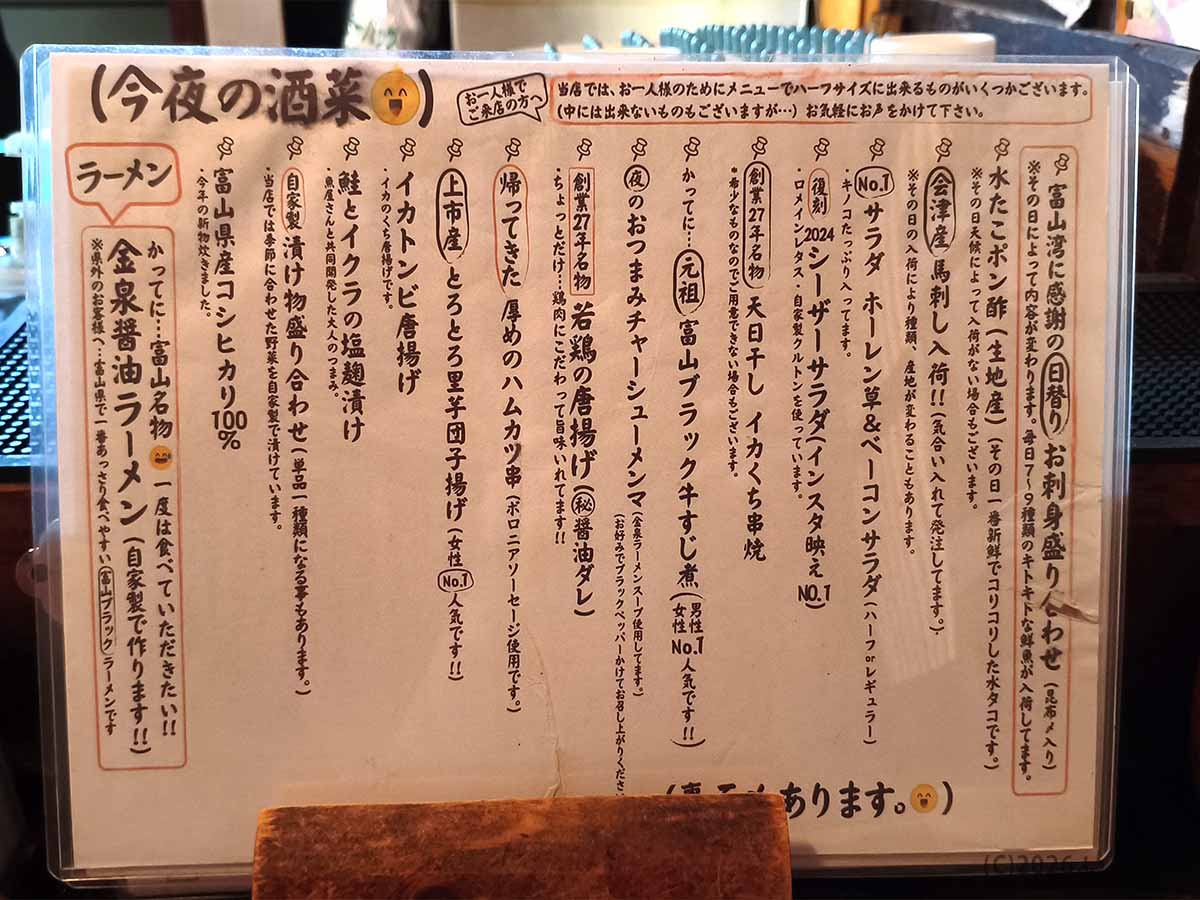 (今夜の酒菜)
お一人様で
ご来店の方へ
当店では、お一人様のためにメニューでハーフサイズに出来るものがいくつかございます。
(中には出来ないものもございますが…) お気軽にお声をかけて下さい。
富山湾に感謝の日替りお刺身盛り合わせ(昆布〆入り)
※その日によって内容が変わります。毎日7〜9種類のキトキトな鮮魚が入荷してます。
水たこポン酢(生地産)(その日一番新鮮でコリコリした水タコです。)
※その日天候によって入荷がない場合もございます。
会津産 馬刺し入荷!!(気合い入れて発注してます。)
※その日の入荷により種類、産地が変わることもあります。
No.1 サラダ ホーレン草&ベーコンサラダ(ハーフorレギュラー)
・キノコたっぷり入ってます。
復刻 2024 シーザーサラダ(インスタ映え NO.1)
・ロメインレタス・自家製クルトンを使っています。
創業27年名物 天日干し イカくち串焼
*希少なものなのでご用意できない場合もございます。
かってに…元祖 富山ブラック牛すじ煮(男性女性No.1人気です!!)
夜のおつまみチャーシューメンマ(金泉ラーメンスープ使用してます。)
(お好みでブラックペッパーかけてお召し上がりください。
創業27年名物 若鶏の唐揚げ(秘醤油ダレ)
・ちょっとだけ…鶏肉にこだわって旨味いれてます!!
帰ってきた 厚めのハムカツ串(ボロニアソーセージ使用です。)
上市産 とろとろ里芋団子揚げ(女性No.1人気です!!)
イカトンビ唐揚げ
・イカのくち唐揚げです。
鮭とイクラの塩麹漬け
・魚屋さんと共同開発した大人のつまみ。
自家製 漬け物盛り合わせ(単品一種類になる事もあります。)
・当店では季節に合わせた野菜を自家製で漬けています。
富山県産コシヒカリ100%
・今年の新物炊きました。
ラーメン
かってに…富山名物 一度は食べていただきたい!!
金泉醤油ラーメン(自家製で作ります!!)
※県外のお客様へ…富山県で一番あっさり食べやすい富山ブラックラーメンです
あります。)
(C)2026